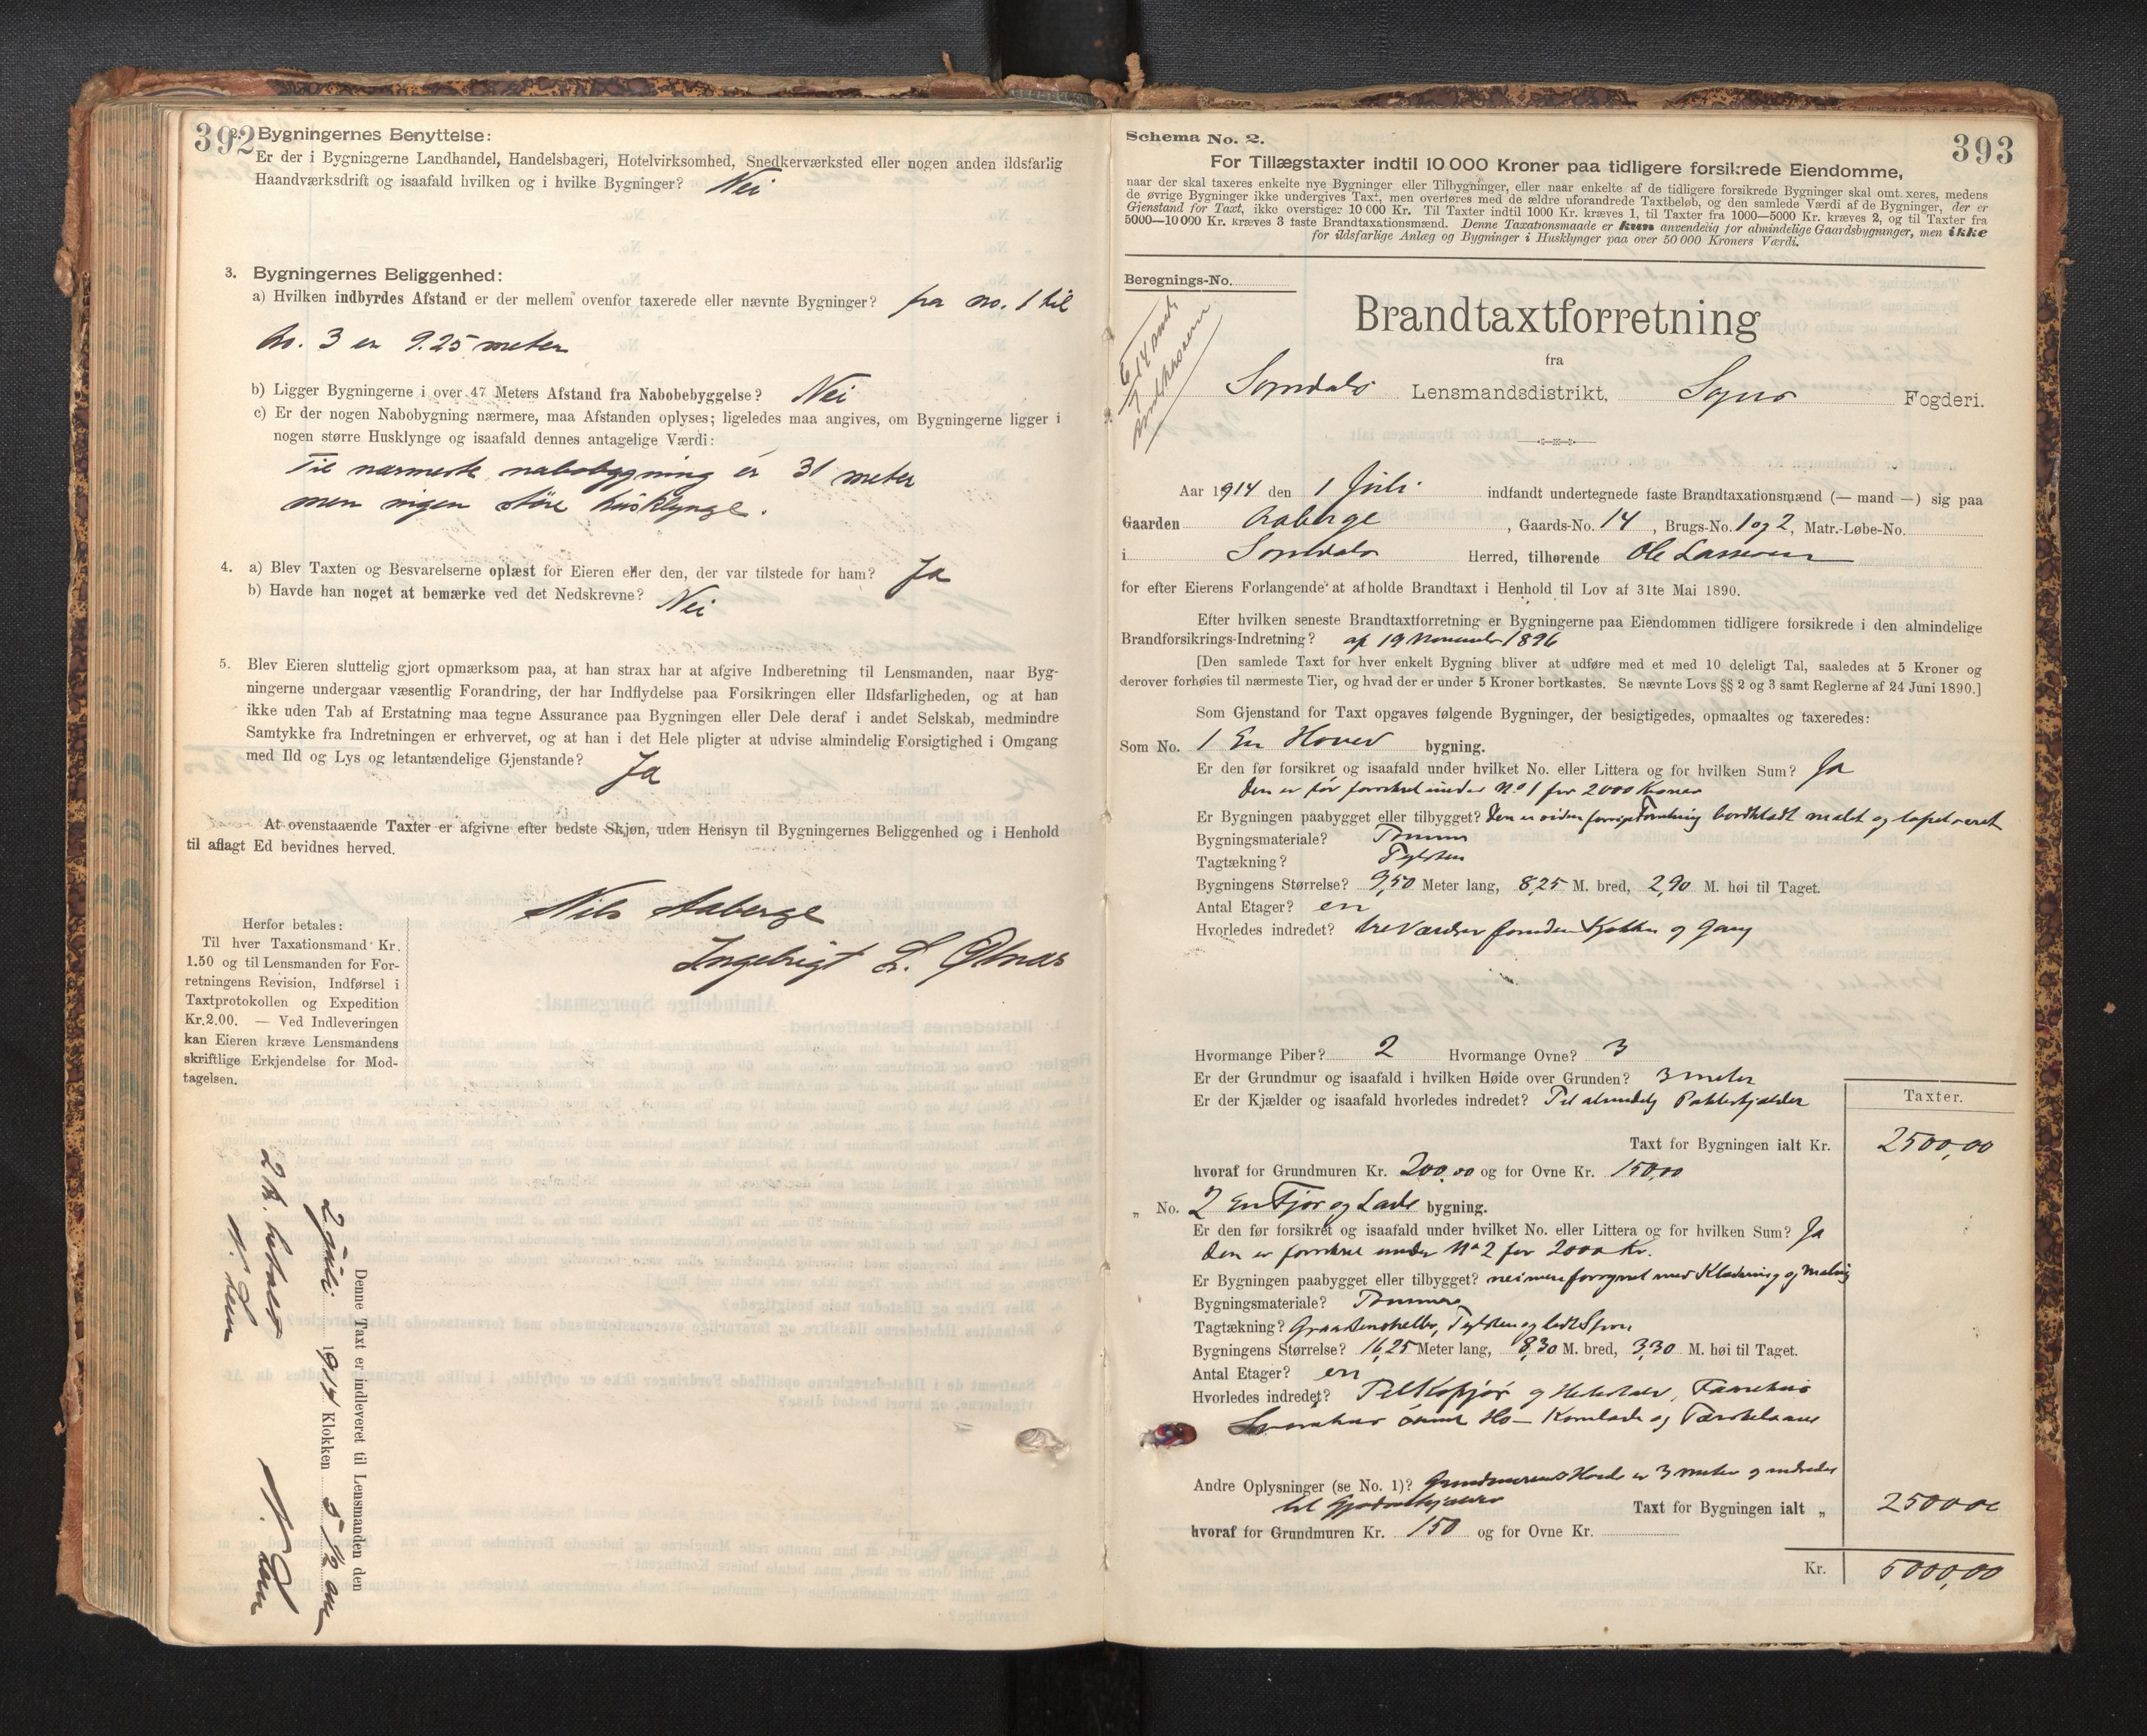 392
2. Bygningernes Benyttelse:
Er der i Bygningerne Landhandel, Handelsbageri, Hotelvirksomhed, Snedkerværksted eller nogen anden ildsfarlig
Haandværksdrift og isaafald hvilken og i hvilke Bygninger? Nei
3. Bygningernes Beliggenhed:
a) Hvilken indbyrdes Afstand er der mellem ovenfor taxerede eller nævnte Bygninger? fra no. 1 til
No. 3 er 9.25 meter
b) Ligger Bygningerne i over 47 Meters Afstand fra Nabobebyggelse? Nei
c) Er der nogen Nabobygning nærmere, maa Afstanden oplyses; ligeledes maa angives, om Bygningerne ligger i
nogen større Husklynge og isaafald dennes antagelige Værdi:
Til nærmeste nabobygning er 31 meter
men ingen störe husklynge.
4. a) Blev Taxten og Besvarelserne oplæst for Eieren eller den, der var tilstede for ham? Ja
b) Havde han noget at bemærke ved det Nedskrevne? Nei
5. Blev Eieren sluttelig gjort opmærksom paa, at han strax har at afgive Indberetning til Lensmanden, naar Byg-
ningerne undergaar væsentlig Forandring, der har Indflydelse paa Forsikringen eller Ildsfarligheden, og at han
ikke uden Tab af Erstatning maa tegne Assurance paa Bygningen eller Dele deraf i andet Selskab, medmindre
Samtykke fra Indretningen er erhvervet, og at han i det Hele pligter at udvise almindelig Forsigtighed i Omgang
med Ild og Lys og letantændelige Gjenstande? Ja
At ovenstaaende Taxter er afgivne efter bedste Skjøn, uden Hensyn til Bygningernes Beliggenhed og i Henhold
til aflagt Ed bevidnes herved.
Nils Aaberge
Ingebrigt L. Ølnes
Herfor betales:
Til hver Taxationsmand Kr.
1.50 og til Lensmanden for For-
retningens Revision, Indførsel i
Taxtprotokollen og Expedition
Kr. 2.00. — Ved Indleveringen
kan Eieren kræve Lensmandens
skriftlige Erkjendelse for Mod-
tagelsen.
Denne Taxt er indleveret til Lensmanden den
2 Juli 1914 Klokken 5 1/2 em
2 Kr. betalt
393
Schema No. 2.
For Tillægstaxter indtil 10 000 Kroner paa tidligere forsikrede Eiendomme,
naar der skal taxeres enkelte nye Bygninger eller Tilbygninger, eller naar enkelte af de tidligere forsikrede Bygninger skal omt xeres, medens
de øvrige Bygninger ikke undergives Taxt, men overføres med de ældre uforandrede Taxtbeløb, og den samlede Værdi af de Bygninger, der er
Gjenstand for Taxt, ikke overstiger 10 000 Kr. Til Taxter indtil 1000 Kr. kræves 1, til Taxter fra 1000—5000 Kr. kræves 2, og til Taxter fra
5000—10 000 Kr. kræves 3 faste Brandtaxationsmænd. Denne Taxationsmaade er kun anvendelig for almindelige Gaardsbygninger, men ikke
for ildsfarlige Anlæg og Bygninger i Husklynger paa over 50 000 Kroners Værdi.
Beregnings-No.
Brandtaxtforretning
fra
Sogndals Lensmandsdistrikt, Sogns Fogderi.
Aar 1914 den 1 Juli indfandt undertegnede faste Brandtaxationsmænd (— mand —) sig paa
Gaarden Aaberge, Gaards-No. 14, Brugs-No. 1 og 2, Matr.-Løbe-No.
i Sogndals Herred, tilhørende Ole Lassesen
for efter Eierens Forlangende at afholde Brandtaxt i Henhold til Lov af 31te Mai 1890.
Efter hvilken seneste Brandtaxtforretning er Bygningerne paa Eiendommen tidligere forsikrede i den almindelige
Brandforsikrings-Indretning? af 19 November 1896
[Den samlede Taxt for hver enkelt Bygning bliver at udføre med et med 10 deleligt Tal, saaledes at 5 Kroner og
derover forhøies til nærmeste Tier, og hvad der er under 5 Kroner bortkastes. Se nævnte Lovs §§ 2 og 3 samt Reglerne af 24 Juni 1890.]
Som Gjenstand for Taxt opgaves følgende Bygninger, der besigtigedes, opmaaltes og taxeredes:
Som No. 1 En Hoved bygning.
Er den før forsikret og isaafald under hvilket No. eller Littera og for hvilken Sum? Ja
Den er før forsikret under No 1 for 2000 Kroner
Er Bygningen paabygget eller tilbygget? Den er siden forrige Forretning bordklædt malet og tapetseret
Bygningsmateriale? Tømmer
Tagtækning? Teglsten
Bygningens Størrelse? 9,50 Meter lang, 8,25 M. bred, 2,90 M. høi til Taget.
Antal Etager? en
Hvorledes indredet? tre Værelser foruden Kjøkken og Gang
Hvormange Piber? 2 Hvormange Ovne? 3
Er der Grundmur og isaafald i hvilken Høide over Grunden? 3 meter
Er der Kjælder og isaafald hvorledes indredet? Til almindelig Potetkjælder
Taxter.
Taxt for Bygningen ialt Kr. 2500,00
hvoraf for Grundmuren Kr. 200,00 og for Ovne Kr. 150,00
„ No. 2 En Fjøs og Lade bygning.
Er den før forsikret og isaafald under hvilket No. eller Littera og for hvilken Sum? Ja
Den er forsikret under No 2 for 2000 Kr.
Er Bygningen paabygget eller tilbygget? nei men forsynet med Klædning og Maling
Bygningsmateriale? Tømmer
Tagtækning? Graastenheller, Teglsten og lidt Spon
Bygningens Størrelse? 16,25 Meter lang, 8,30 M. bred, 3,30 M. høi til Taget.
Antal Etager? en
Hvorledes indredet? Til Kofjøs og Hestestald, Faarehus
samt Hø- Kornlade og
Andre Oplysninger (se No. 1)? Grundmurens Høide er 3 meter og indredet
til Gjødselkjælder
Taxt for Bygningen ialt „ 2500,00
hvoraf for Grundmuren Kr. 150 og for Ovne Kr.
Kr. 5000,00